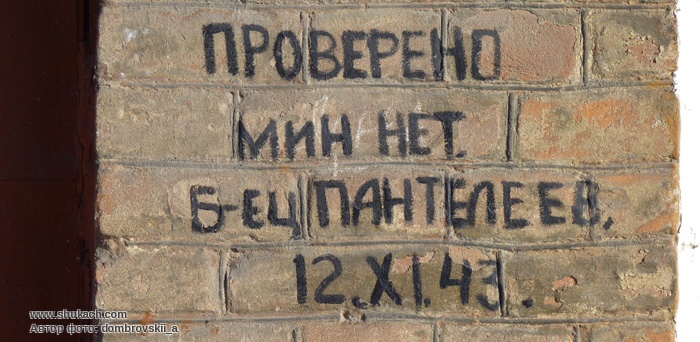 ПРОВЕРЕНО
МИН НЕТ.
Б-ЕЦ ПАНТЕЛЕЕВ.
12.XI.43.
www.shukach.com
Автор фото: dombrovskii_a